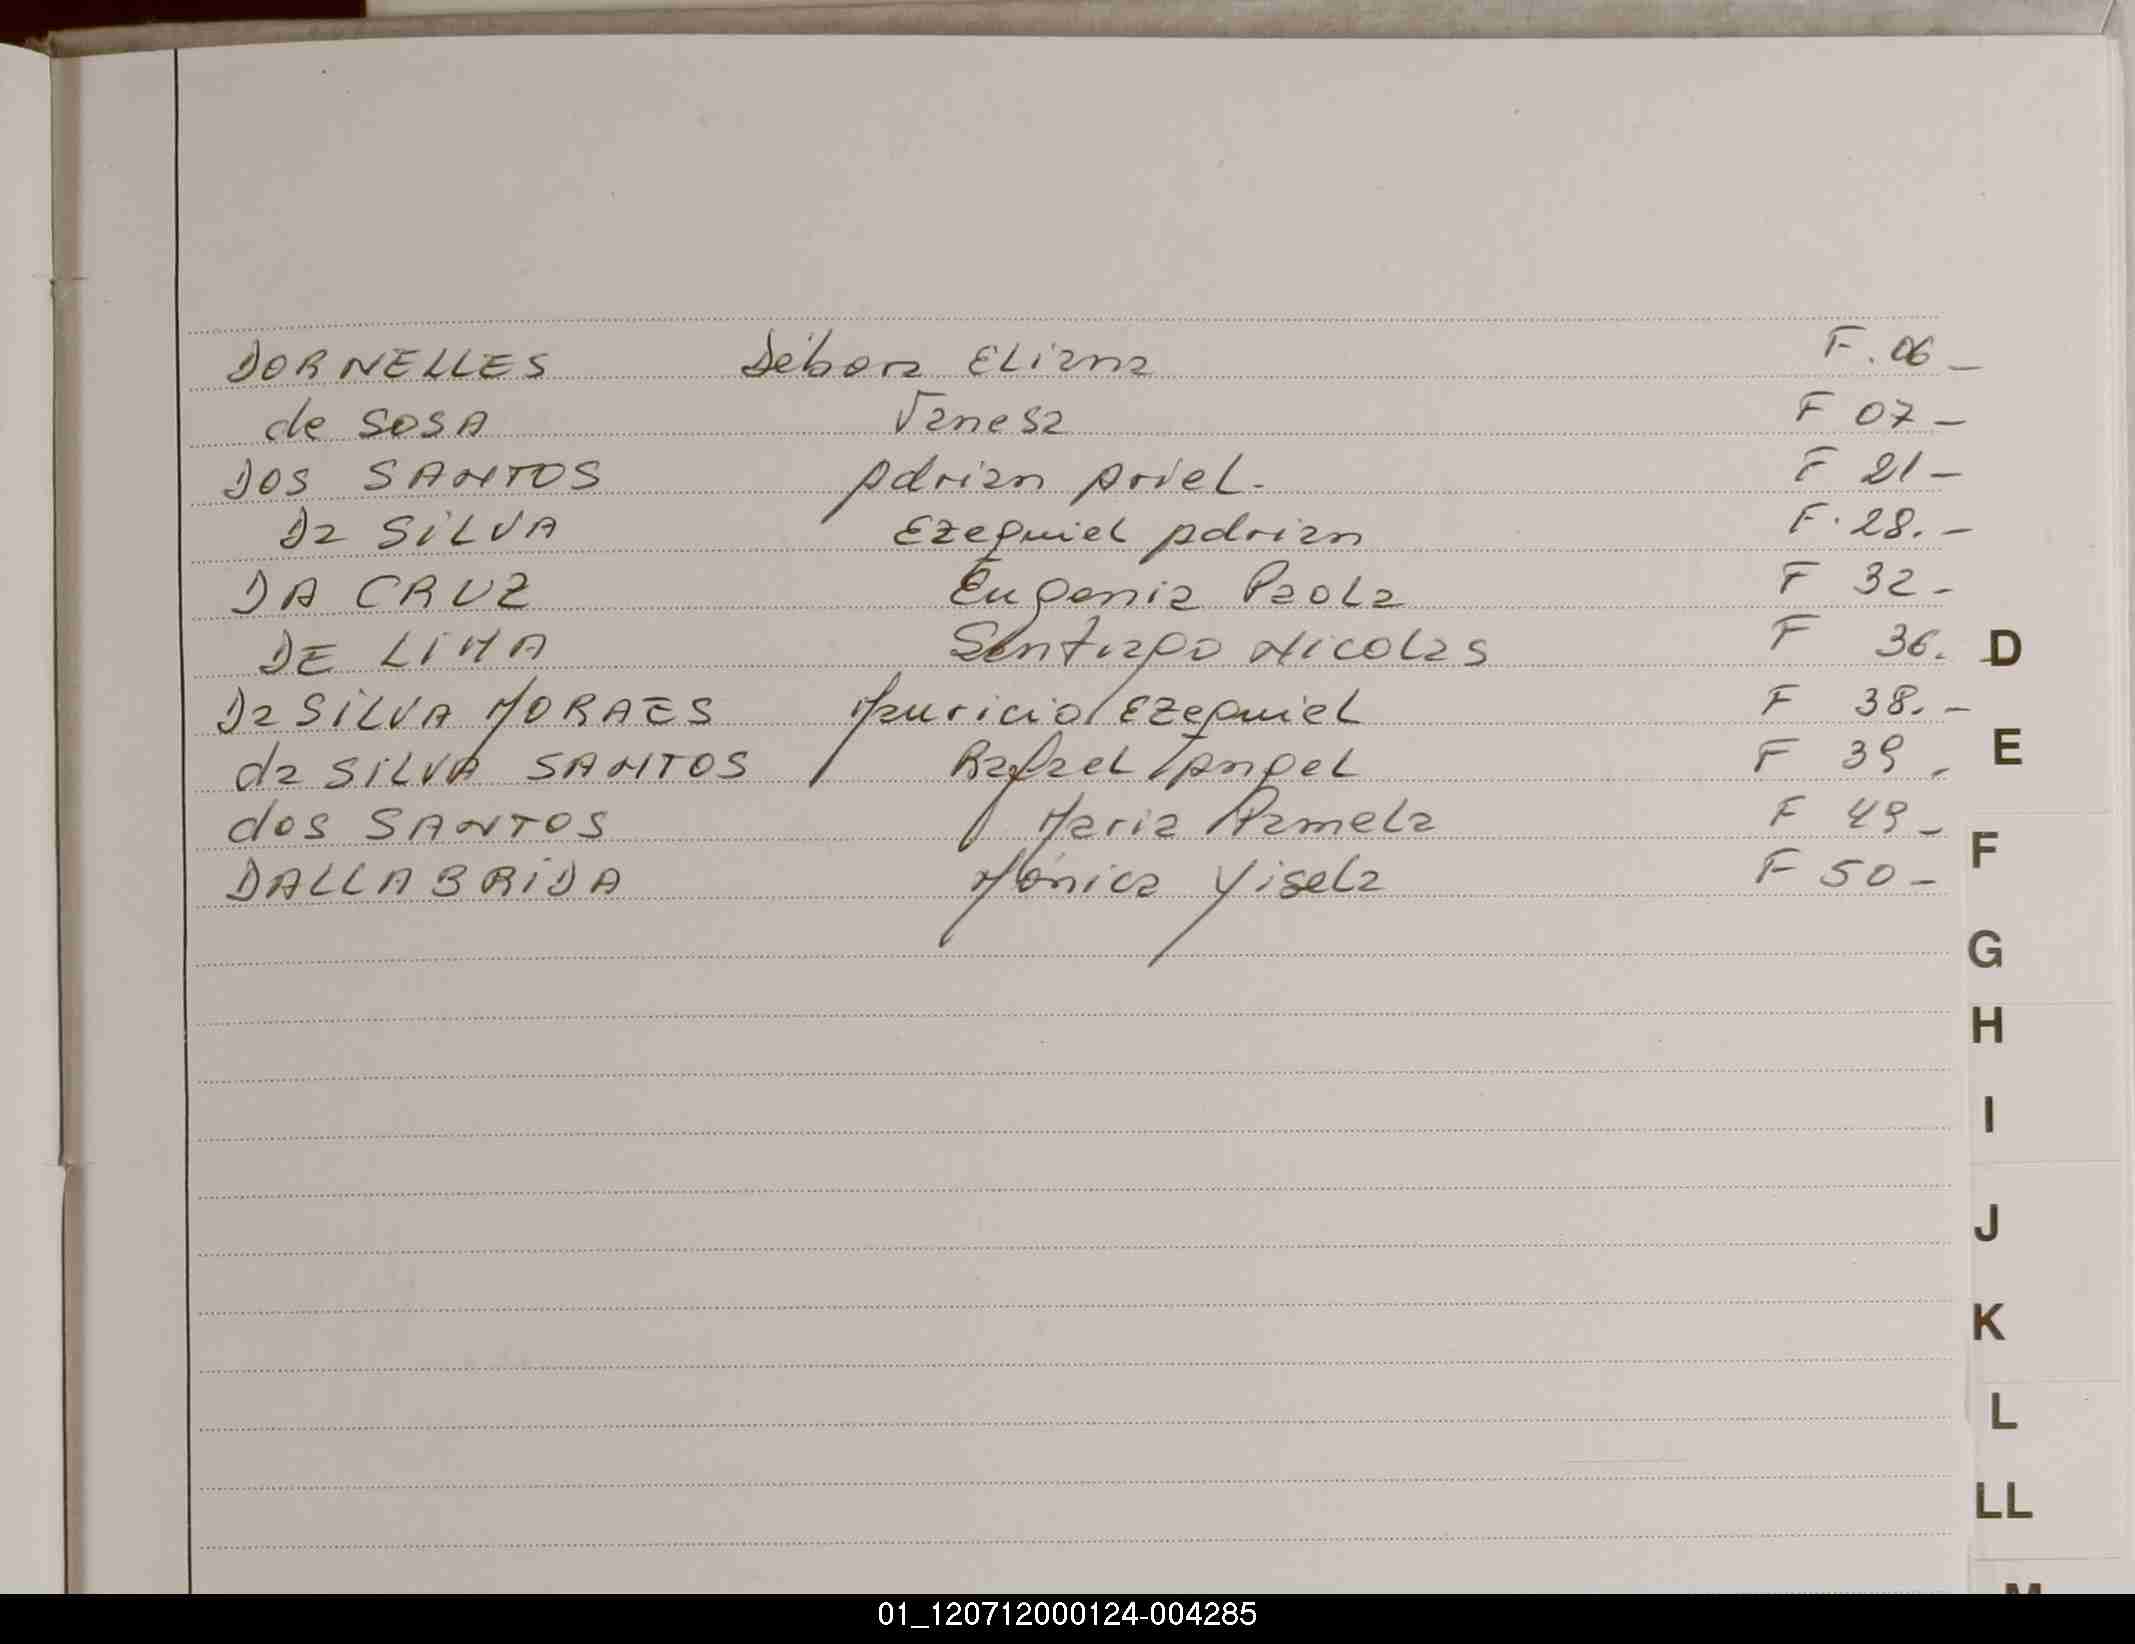 DORNELLES Débora Eliana F. 06 -
de SOSA Vanesa F 07 -
DOS SANTOS Adrian Ariel. F 21 -
Da SiLVA Ezequiel Adrian F. 28. -
DA CRUZ Eugenia Paola F 32 -
DE LiMA Santiago Nicolas F 36.
D
Da SiLVA MORAES Mauricio Ezequiel F 38. -
da SiLVA SANTOS Rafael Angel F 39 -
E
dos SANTOS Maria Pamela F 49 -
F
DALLABRiDA Mónica Yisela F 50 -
G
H
I
J
K
L
LL
M
01_120712000124-004285